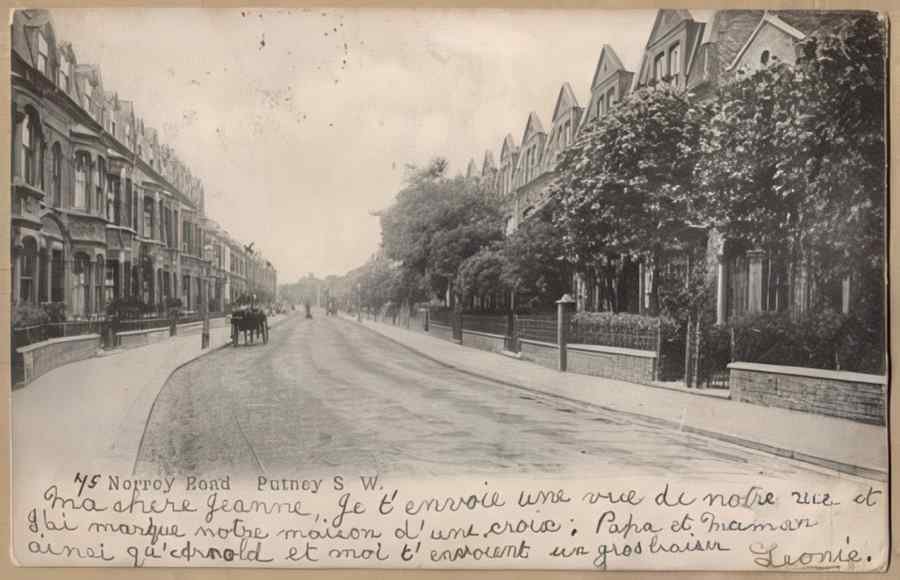 75 Norroy Road Putney S W.
Ma chere Jeanne, Je t'envoie une vue de notre rue et
J'ai marque notre maison d'une croix; Papa et Maman
ainsi qu'Arnold et moi t'envoient un gros baiser Leonie.